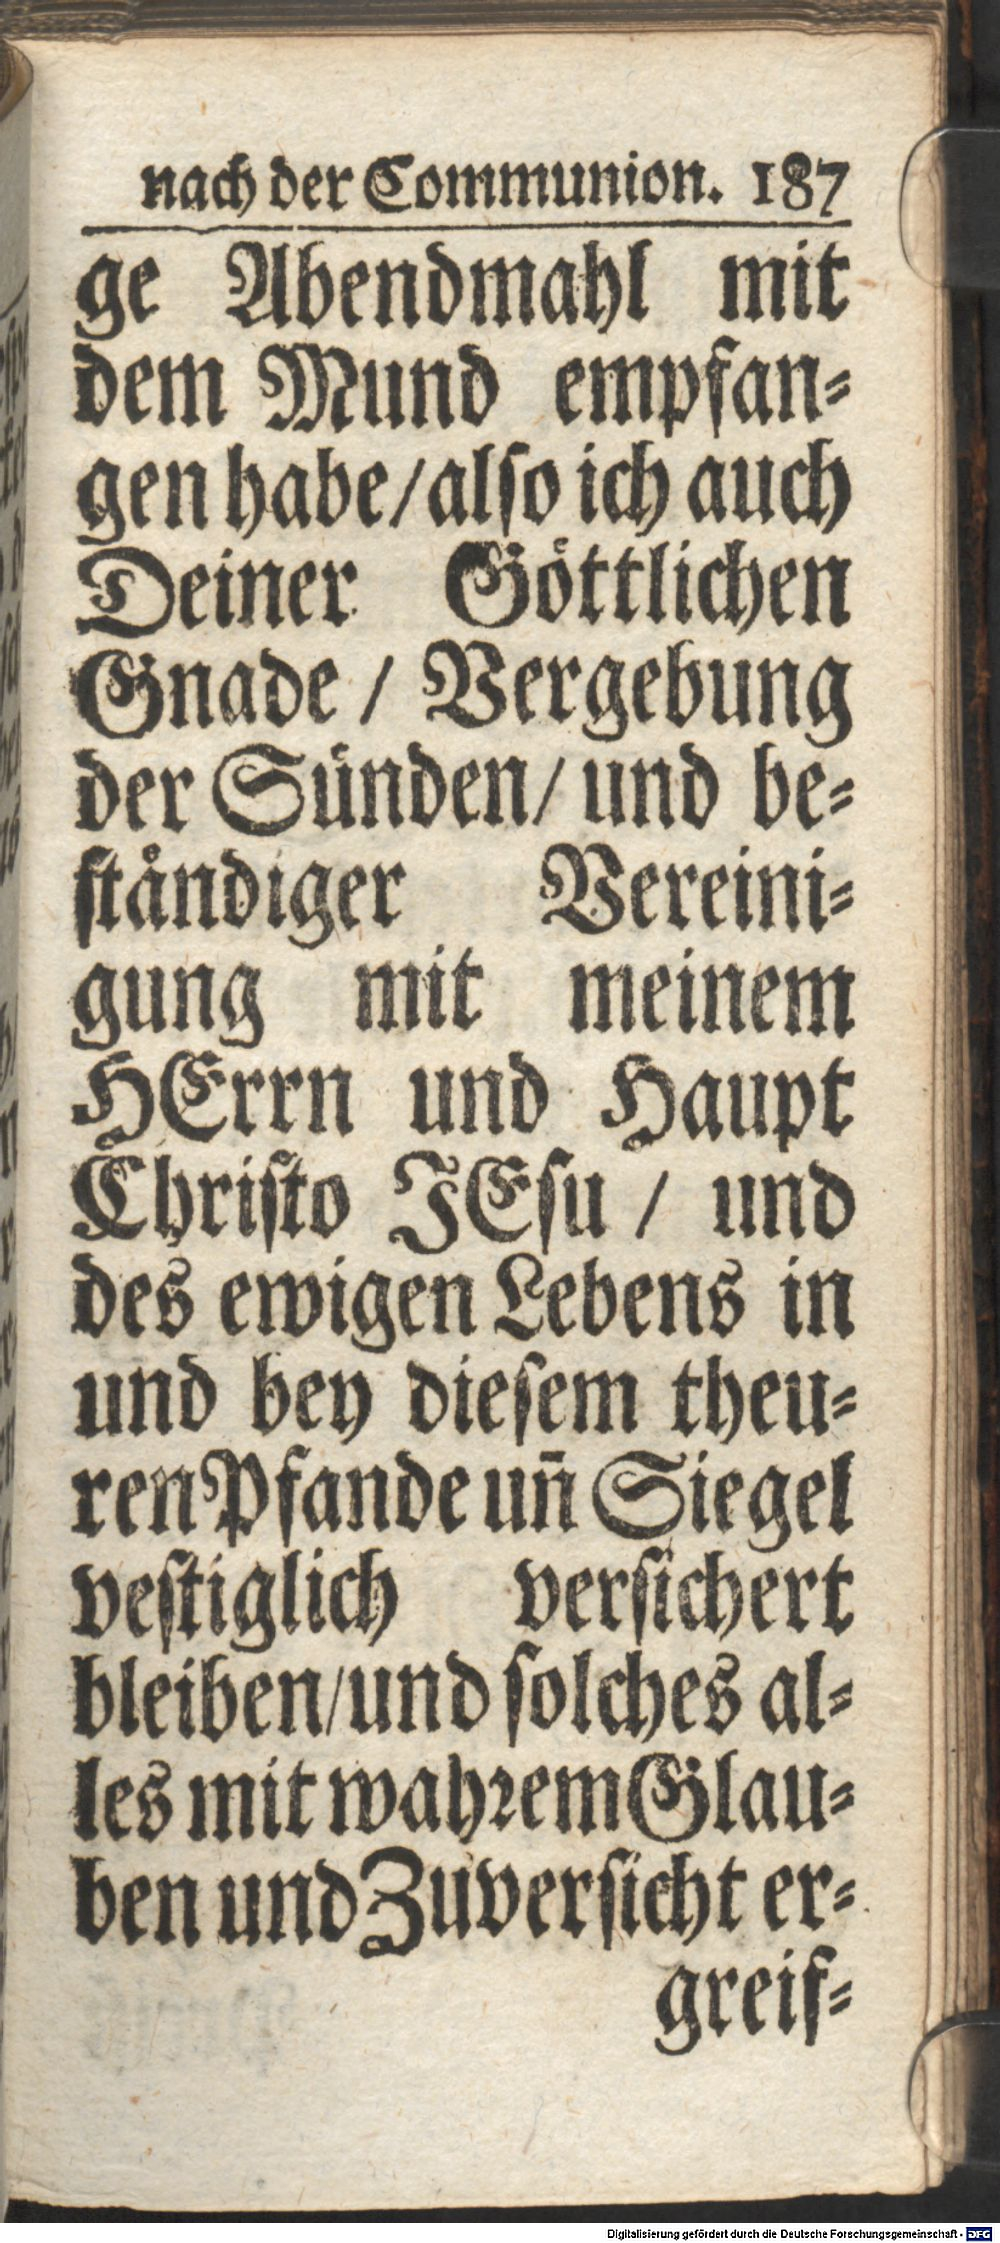 nach der Communion. 187
ge Abendmahl mit
dem Mund empfan-
gen habe/also ich auch
Deiner Göttlichen
Gnade / Vergebung
der Sünden/ und be-
ständiger Vereini-
gung mit meinem
HErrn und Haupt
Christo JEsu / und
des ewigen Lebens in
und bey diesem theu-
ren Pfande un̄ Siegel
vestiglich versichert
bleiben/und solches al-
les mit wahrem Glau-
ben und Zuversicht er-
greif-
Digitalisierung gefördert durch die Deutsche Forschungsgemeinschaft - DFG